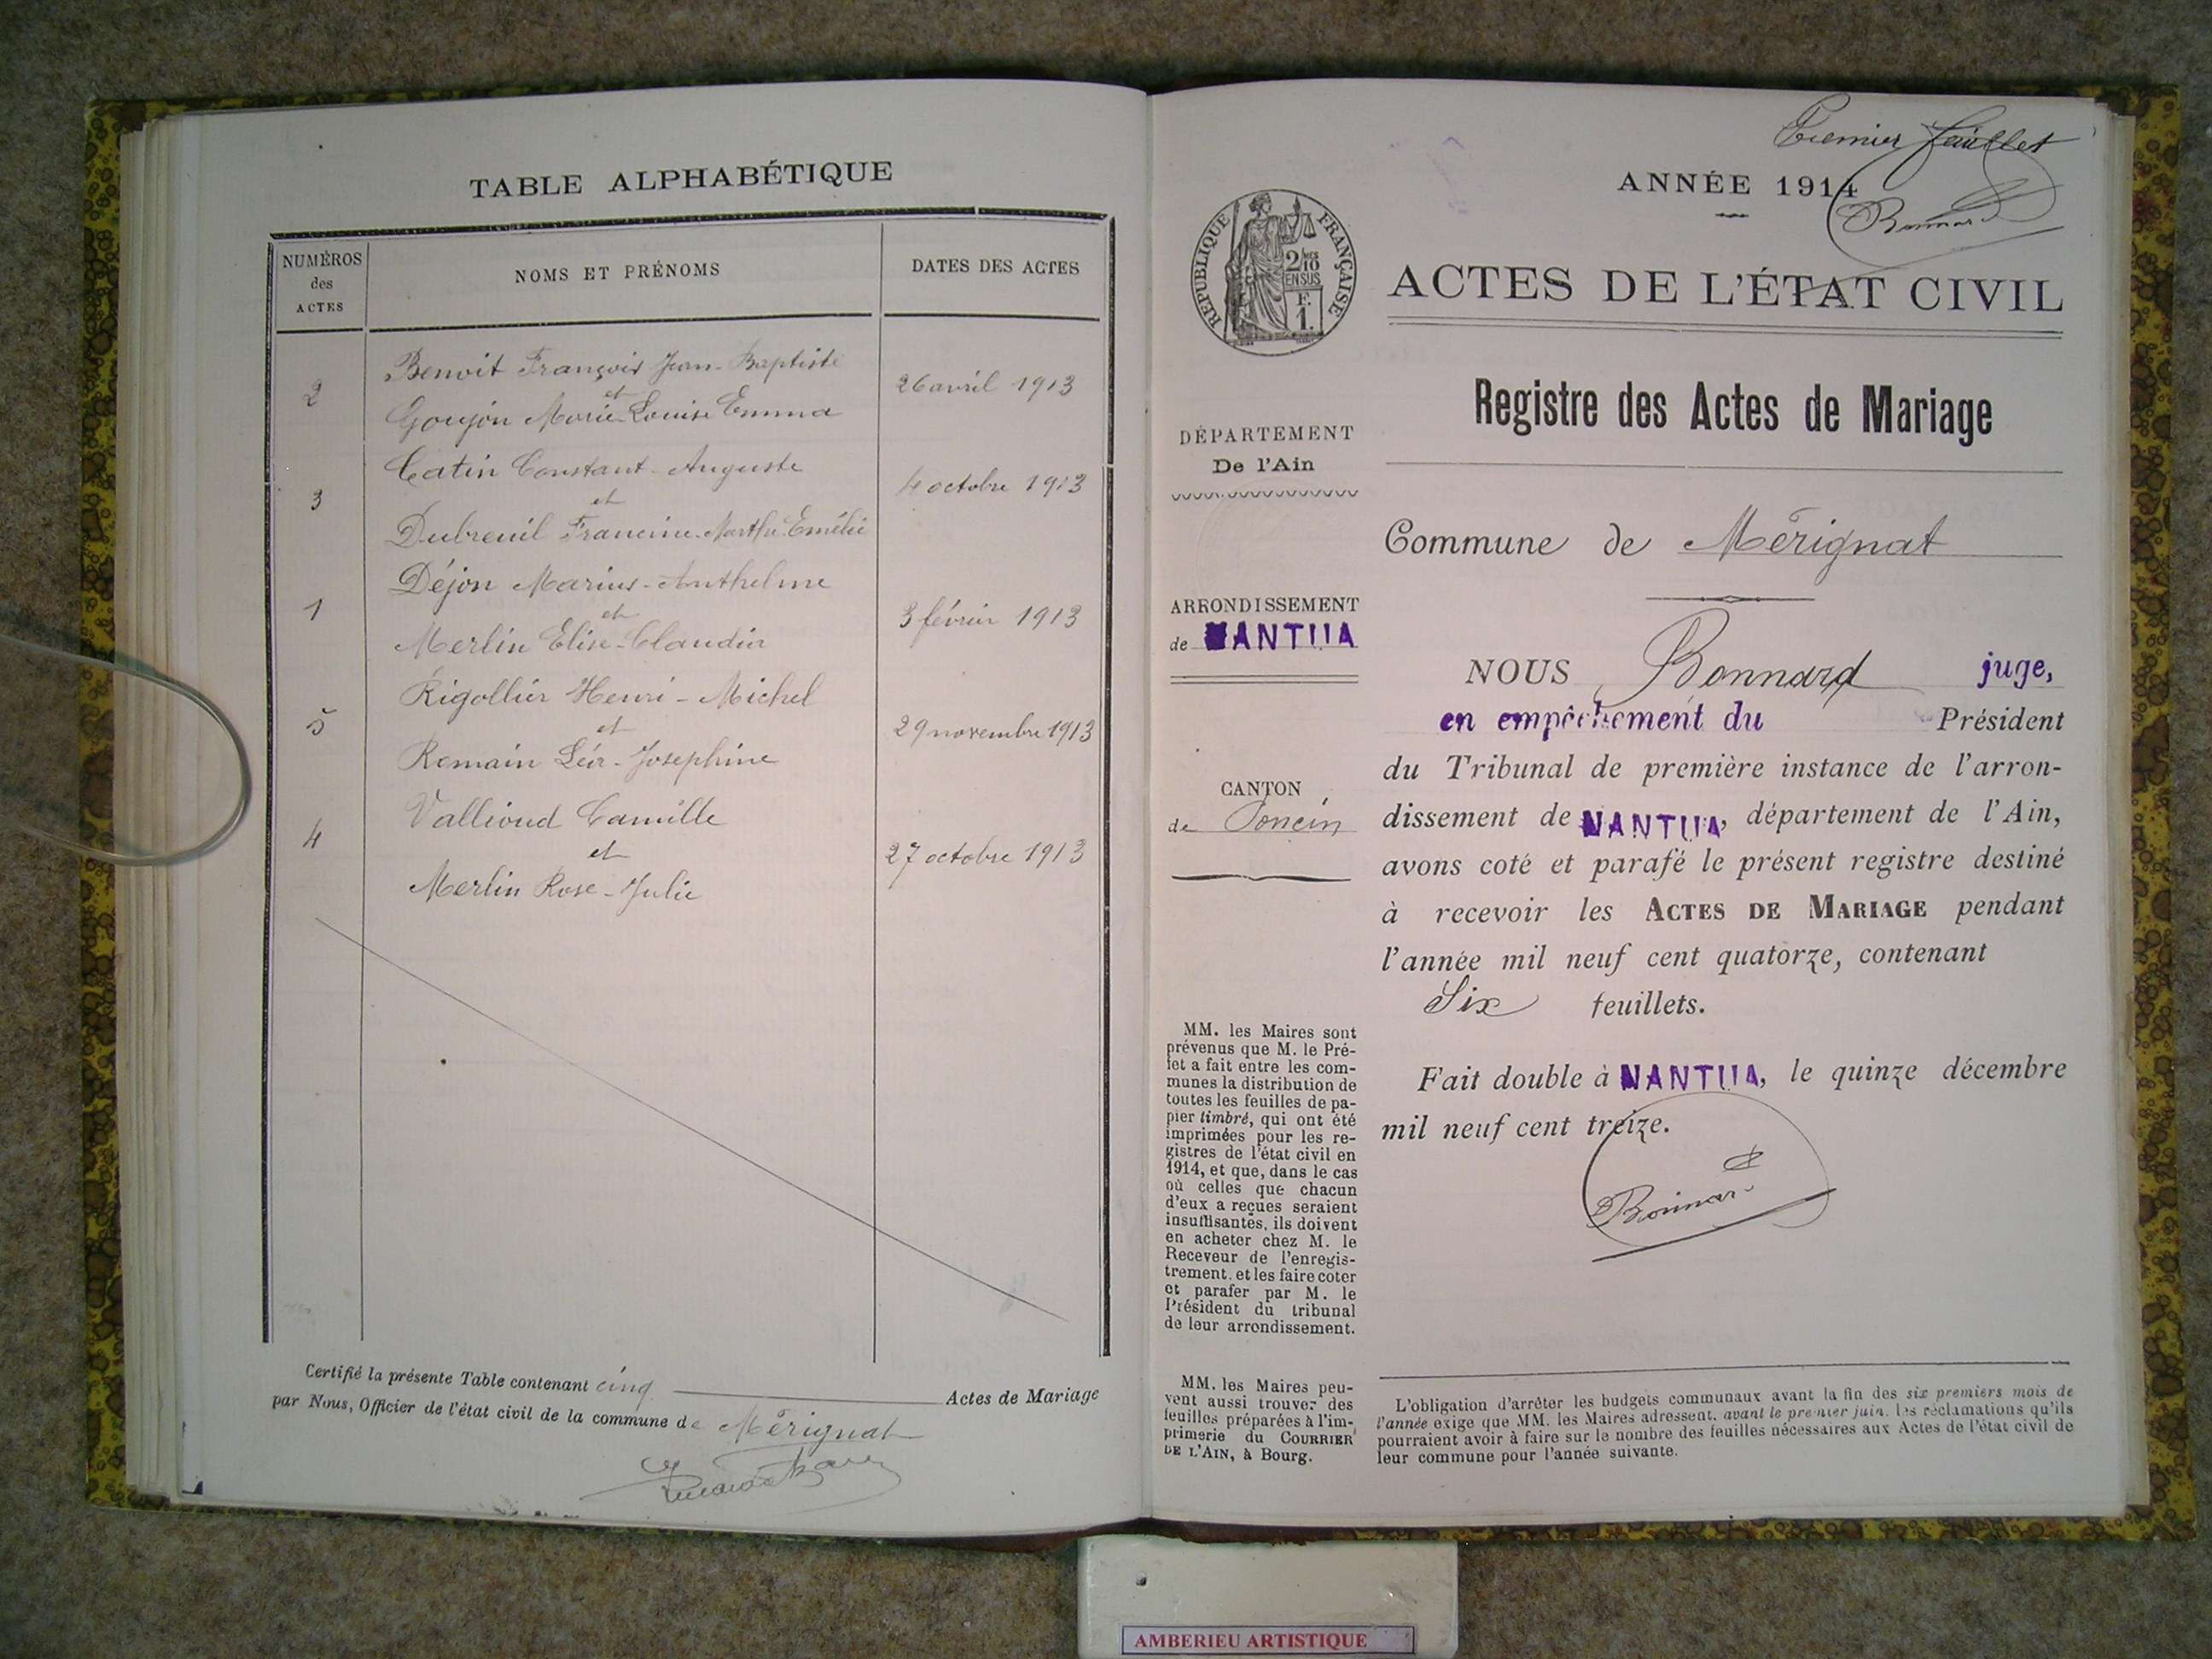 TABLE ALPHABÉTIQUE
NUMÉROS
des
ACTES
NOMS ET PRÉNOMS
DATES DES ACTES
Benoit François Jean-Baptiste
2 et 26 avril 1913
Goujon Marie-Louise Emma
Catin Constant-Auguste
3 et 4 octobre 1913
Dubreuil Francine-Marthe-Emélie
Déjon Marius-Anthelme
1 et 3 février 1913
Merlin Elise-Claudia
Rigollier Henri-Michel
5 et 29 novembre 1913
Romain Léa-Josephine
Vallioud Camille
4 et 27 octobre 1913
Merlin Rose-Julie
Certifié la présente Table contenant cinq Actes de Mariage
par Nous, Officier de l'état civil de la commune de Mérignat
Premier feuillet
ANNÉE 1914
Bonnard
RÉPUBLIQUE FRANÇAISE
2/10
EN SUS
F.
1.
ACTES DE L'ÉTAT CIVIL
Registre des Actes de Mariage
DÉPARTEMENT
De l'Ain
Commune de Mérignat
ARRONDISSEMENT
de NANTUA
CANTON
de Poncin
NOUS Bonnard juge,
en empêchement du Président
du Tribunal de première instance de l'arron-
dissement de NANTUA, département de l'Ain,
avons coté et parafé le présent registre destiné
à recevoir les ACTES DE MARIAGE pendant
l'année mil neuf cent quatorze, contenant
Six feuillets.
Fait double à NANTUA, le quinze décembre
mil neuf cent treize.
Bonnard
MM. les Maires sont
prévenus que M. le Pré-
fet a fait entre les com-
munes la distribution de
toutes les feuilles de pa-
pier timbré, qui ont été
imprimées pour les re-
gistres de l'état civil en
1914, et que, dans le cas
où celles que chacun
d'eux a reçues seraient
insuffisantes, ils doivent
en acheter chez M. le
Receveur de l'enregis-
trement, et les faire coter
et parafer par M. le
Président du tribunal
de leur arrondissement.
MM. les Maires peu-
vent aussi trouver des
feuilles préparées à l'im-
primerie du COURRIER
DE L'AIN, à Bourg.
L'obligation d'arrêter les budgets communaux avant la fin des six premiers mois de
l'année exige que MM. les Maires adressent, avant le premier juin, les réclamations qu'ils
pourraient avoir à faire sur le nombre des feuilles nécessaires aux Actes de l'état civil de
leur commune pour l'année suivante.
AMBERIEU ARTISTIQUE